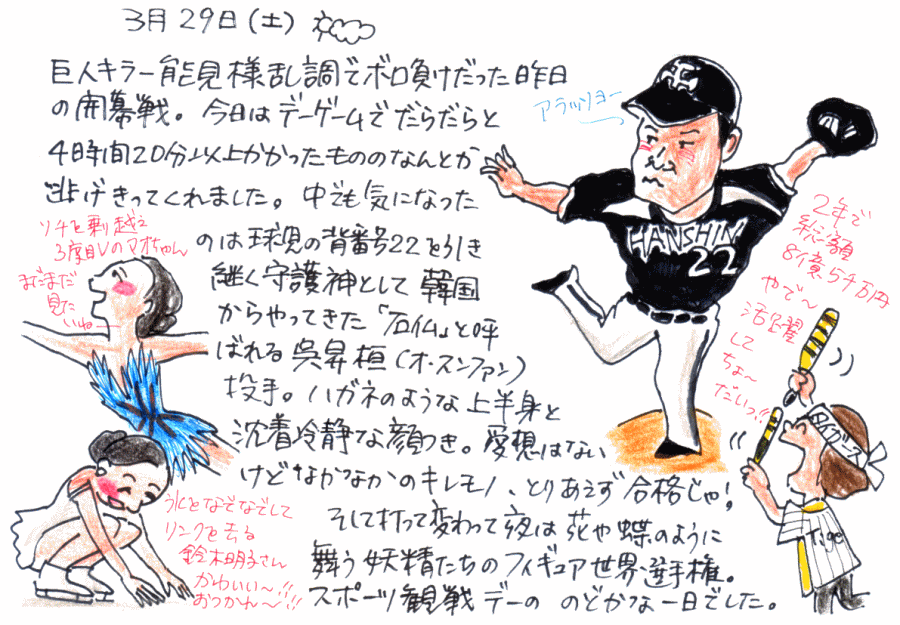 3月29日(土)
巨人キラー能見様乱調でボロ負けだった昨日
の開幕戦。今日はデーゲームでだらだらと
4時間20分以上かかったもののなんとか
逃げきってくれました。中でも気になった
のは球児の背番号22を引き
継く守護神として韓国
からやってきた「石仏」と呼
ばれる呉昇桓(オ・スンファン)
投手。ハガネのような上半身と
沈着冷静な顔つき。愛想はない
けどなかなかのキレモノ、とりあえず合格じゃ!
そして打って変わって夜は花や蝶のように
舞う妖精たちのフィギュア世界選手権。
スポーツ観戦デーの のどかな一日でした。
アラッソヨー
HANSHIN
22
2年で
総額
8億5千万円
やで〜
活躍
して
ちょ〜
だいっ!!
タイガース
Tige
ソチを乗り越え
3度目Vのマオちゃん
まだまだ
見た
いね
氷をなぞなでして
リンクを去る
鈴木明子さん
かわいい〜!!
おつかれ〜!!!